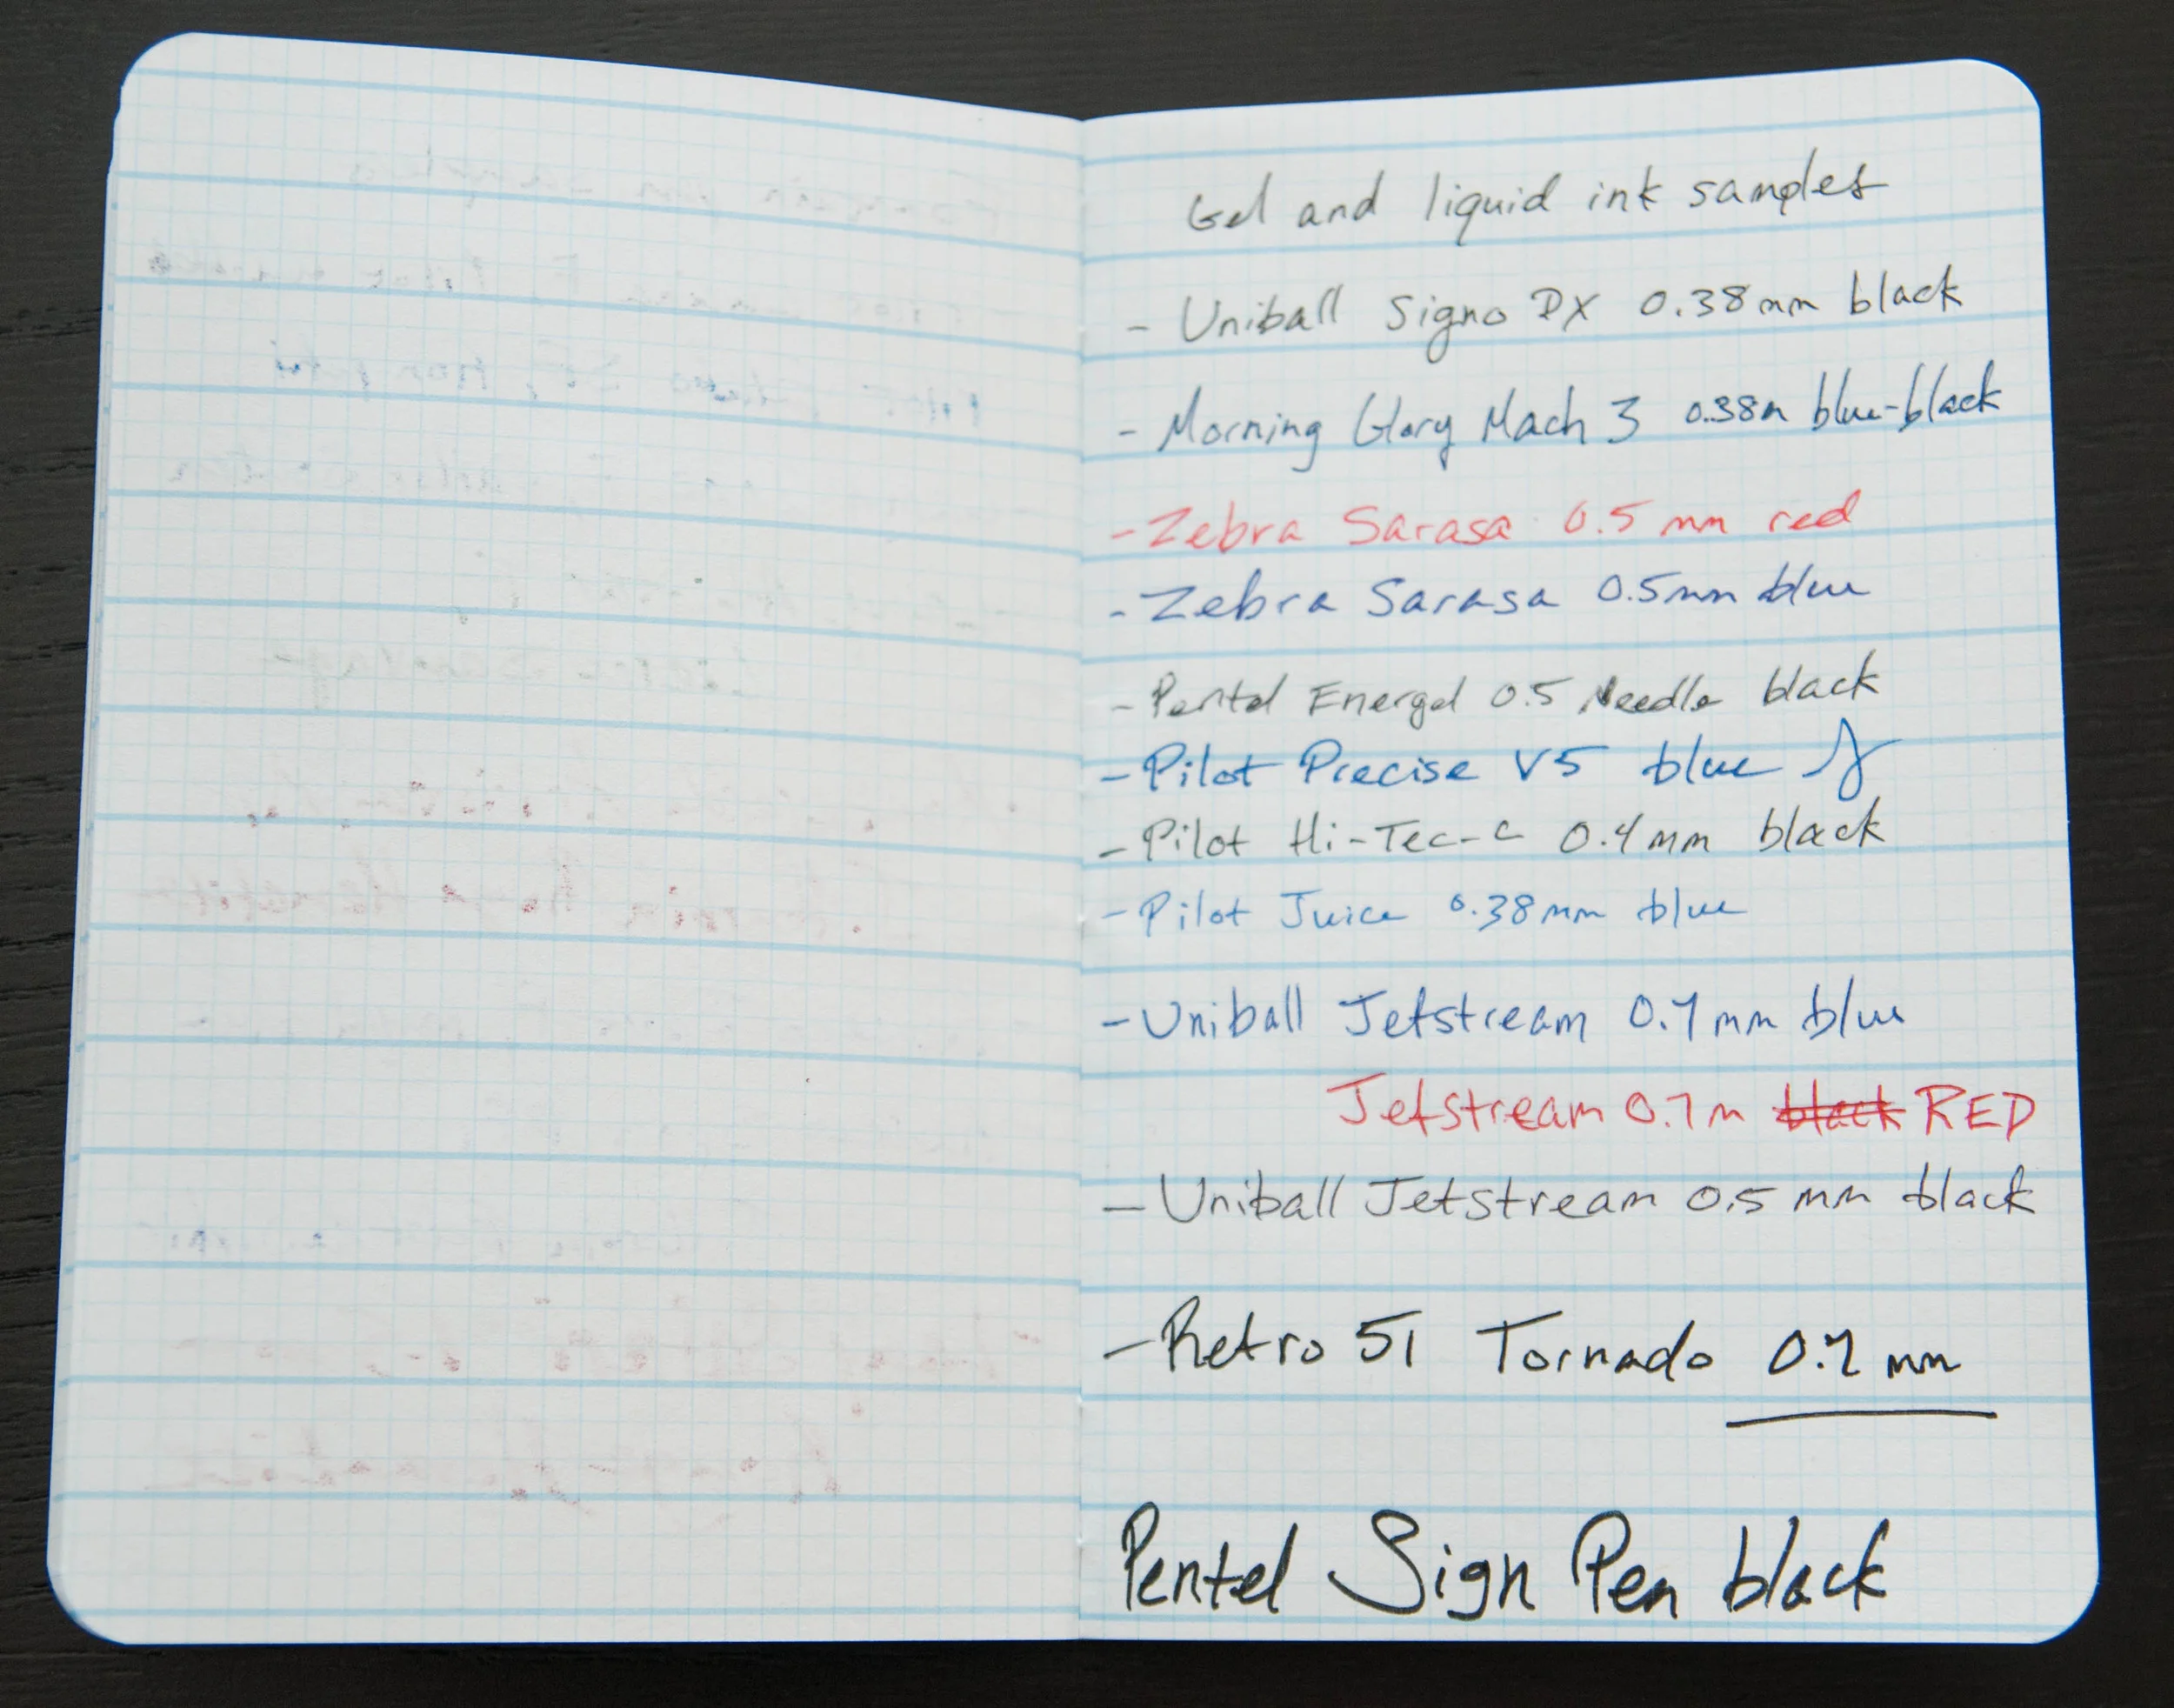 Gel and liquid ink samples
- Uniball Signo DX 0.38mm black
- Morning Glory Mach 3 0.38m blue-black
- Zebra Sarasa 0.5 mm red
- Zebra Sarasa 0.5mm blue
- Pentel Energel 0.5 Needle black
- Pilot Precise V5 blue
- Pilot Hi-Tec-C 0.4mm black
- Pilot Juice 0.38mm blue
- Uniball Jetstream 0.7mm blue
Jetstream 0.7m black RED
- Uniball Jetstream 0.5 mm black
- Retro 51 Tornado 0.7 mm
Pentel Sign Pen black